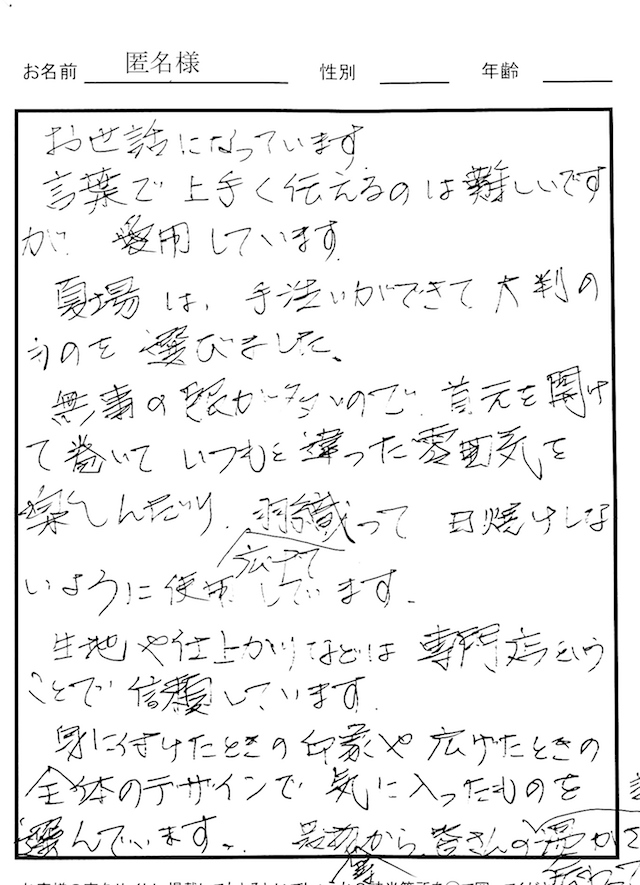 お名前 匿名様 性別 年齢
お世話になっています
言葉で上手く伝えるのは難しいです
が 愛用しています
夏場は、手洗いができて大判の
ものを選びました。
無事の服が多いので、首元を開け
て巻いていつもと違った雰囲気を
楽しんだり、羽織って日焼けしな
広げて
いように使用しています。
生地や仕上がりなどは専門店という
ことで信頼しています。
身に付けたときの印象や広げたときの
全体のデザインで気に入ったものを
選んでいます。 から、皆さんの